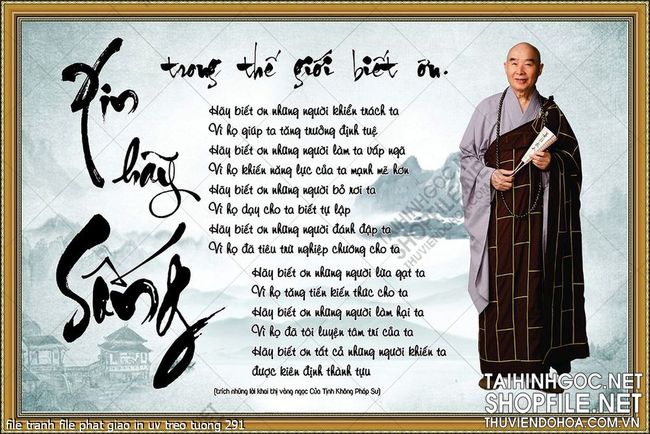 Xin hãy Sống
trong thế giới biết ơn.
Hãy biết ơn những người khiển trách ta
Vì họ giúp ta tăng trưởng định tuệ
Hãy biết ơn những người làm ta vấp ngã
Vì họ khiến năng lực của ta mạnh mẽ hơn
Hãy biết ơn những người bỏ rơi ta
Vì họ dạy cho ta biết tự lập
Hãy biết ơn những người đánh đập ta
Vì họ đã tiêu trừ nghiệp chướng cho ta
Hãy biết ơn những người lừa gạt ta
Vì họ tăng tiến kiến thức cho ta
Hãy biết ơn những người làm hại ta
Vì họ đã tôi luyện tâm trí của ta
Hãy biết ơn tất cả những người khiến ta
được kiên định thành tựu
(trích những lời khai thị vàng ngọc Của Tịnh Không Pháp Sư)
TAIHINHGOC.NET
SHOPFILE.NET
THUVIENDOHOA.VN
TAIHINHGOC.NET
SHOPFILE.NET
THUVIENDOHOA.COM.VN
file tranh file phat giao in uv treo tuong 291